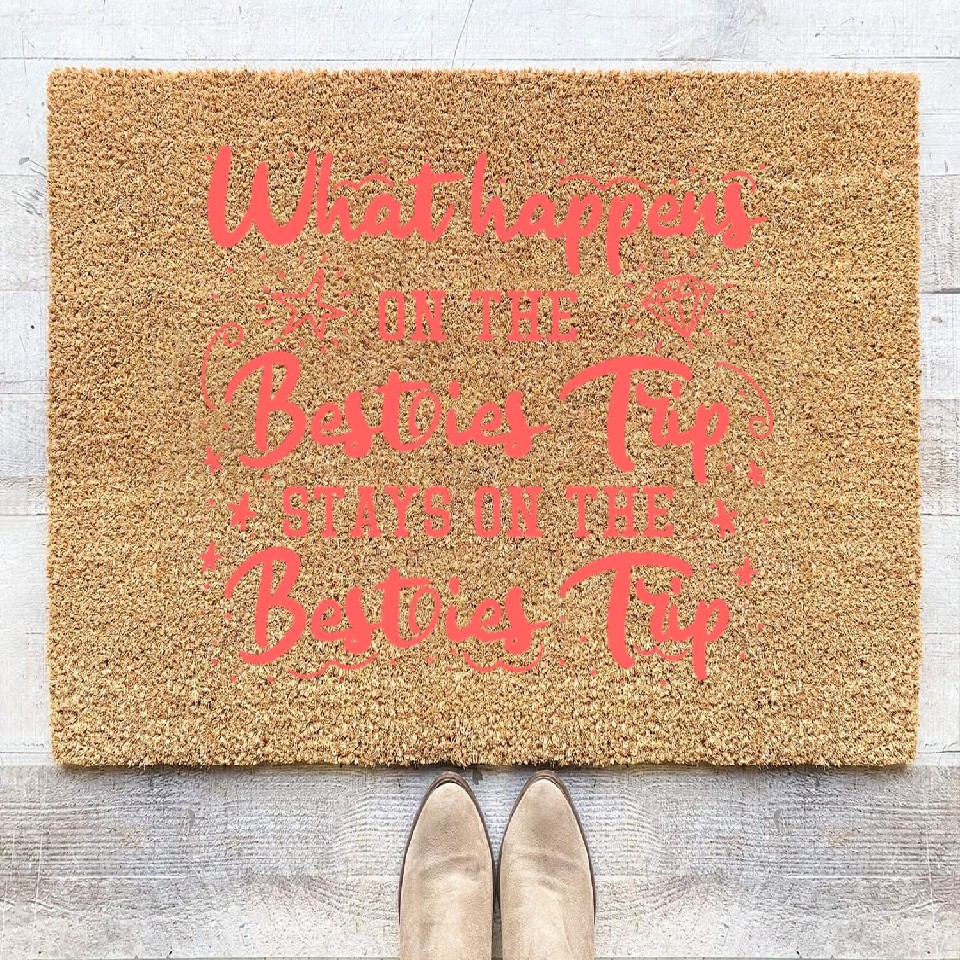 What happens
ON THE
Besties Trip
STAYS ON THE
Besties Trip